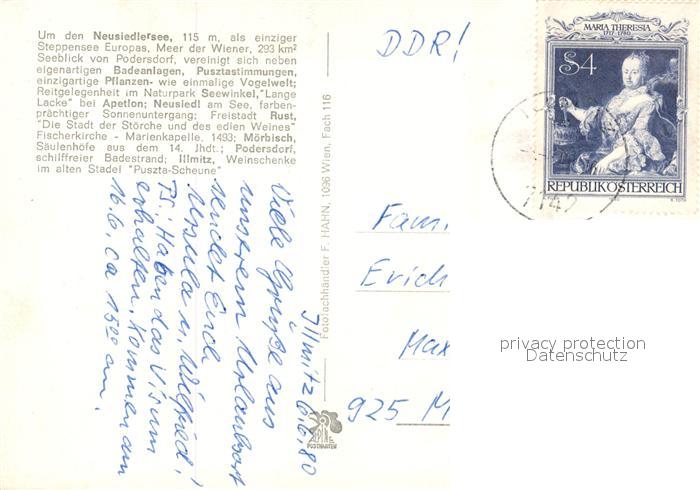 Um den Neusiedlersee, 115 m, als einziger
Steppensee Europas, Meer der Wiener, 293 km²
Seeblick von Podersdorf, vereinigt sich neben
eigenartigen Badeanlagen, Pusztastimmungen,
einzigartige Pflanzen- wie einmalige Vogelwelt;
Reitgelegenheit im Naturpark Seewinkel, "Lange
Lacke" bei Apetlon; Neusiedl am See, farben-
prächtiger Sonnenuntergang; Freistadt Rust,
"Die Stadt der Störche und des edlen Weines"
Fischerkirche - Marienkapelle, 1493; Mörbisch,
Säulenhöfe aus dem 14. Jhdt.; Podersdorf,
schilffreier Badestrand; Illmitz, Weinschenke
im alten Stadel "Puszta-Scheune"
Illmitz 6.6.80
Viele Grüße aus
unserem Urlaubsort
sendet Euch
Ursula u. Wilfried!
PS: Haben das Visum
erhalten. Kommen am
16.6. ca 15⁰⁰ an.
Fotofachhändler F. HAHN, 1096 Wien, Fach 116
ALPINE
POSTKARTEN
DDR!
MARIA THERESIA
1717-1780
S4
REPUBLIK ÖSTERREICH
7142
Fam.
Erich
Max
925 M
privacy protection
Datenschutz